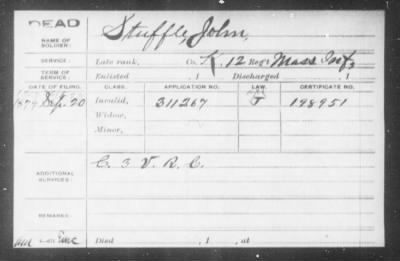 DEAD
NAME OF SOLDIER: Stuffle, John,
SERVICE: Late rank, Co. K, 12 Reg't Mass Inf,
TERM OF SERVICE: Enlisted , 1 Discharged , 1
DATE OF FILING. CLASS. APPLICATION NO. LAW. CERTIFICATE NO.
1879 Sep. 20 Invalid, 311267 J 198951
Widow,
Minor,
ADDITIONAL SERVICES: C. 3 V. R. C.
REMARKS:
Died , 1 , at